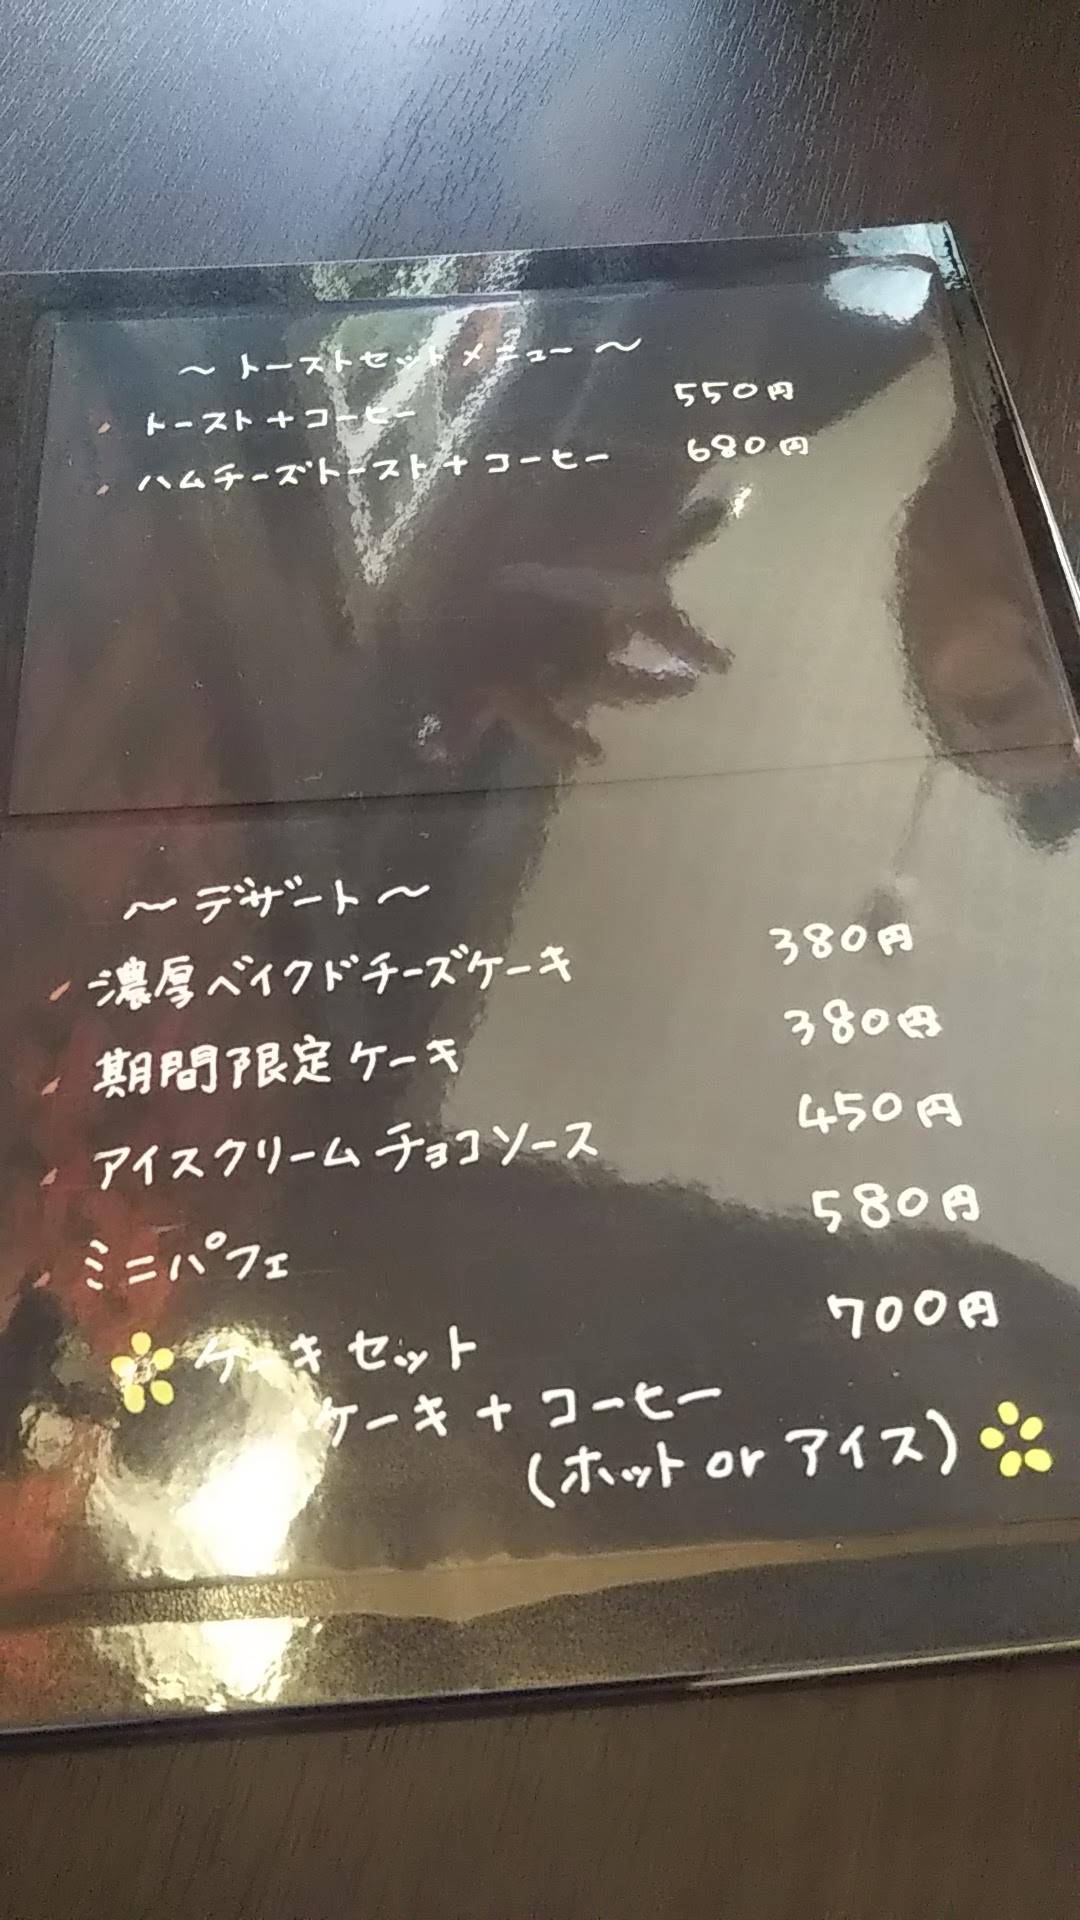 ～トーストセットメニュー～
トースト＋コーヒー 550円
ハムチーズトースト＋コーヒー 680円
～デザート～
濃厚ベイクドチーズケーキ 380円
期間限定ケーキ 380円
アイスクリームチョコソース 450円
ミニパフェ 580円
ケーキセット 700円
ケーキ＋コーヒー
(ホット or アイス)